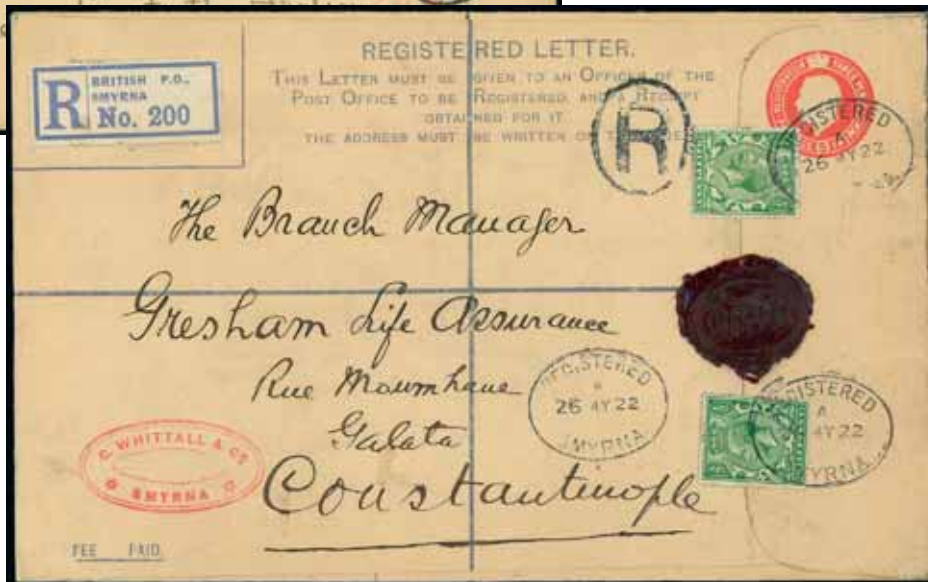 REGISTERED LETTER.
THIS LETTER MUST BE GIVEN TO AN OFFICER OF THE
POST OFFICE TO BE REGISTERED, AND A RECEIPT
OBTAINED FOR IT.
THE ADDRESS MUST BE WRITTEN ON
R
BRITISH P.O.,
SMYRNA
No. 200
R
REGISTERED
A
26 MY 22
The Branch Manager
Gresham Life Assurance
Rue Moumhane
Galata
Constantinople
REGISTERED
26 MY 22
SMYRNA
REGISTERED
A
MY 22
SMYRNA
C. WHITTALL & Co
SMYRNA
FEE PAID.